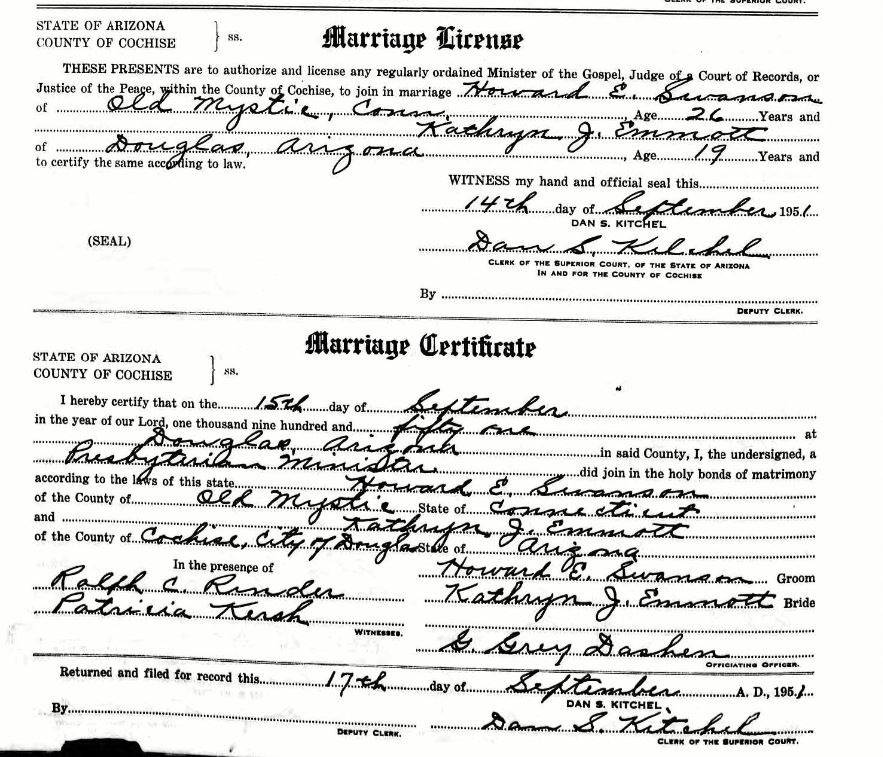 CLERK OF THE SUPERIOR COURT.
STATE OF ARIZONA
COUNTY OF COCHISE } ss.
Marriage License
THESE PRESENTS are to authorize and license any regularly ordained Minister of the Gospel, Judge of a Court of Records, or
Justice of the Peace, within the County of Cochise, to join in marriage Howard E. Swanson
of Old Mystic, Conn., Age 26 Years and
Kathryn J. Emmott
of Douglas, Arizona, Age 19 Years and
to certify the same according to law.
WITNESS my hand and official seal this
14th day of September, 1951.
DAN S. KITCHEL
(SEAL)
Dan S. Kitchel
CLERK OF THE SUPERIOR COURT, OF THE STATE OF ARIZONA
IN AND FOR THE COUNTY OF COCHISE
By
DEPUTY CLERK.
Marriage Certificate
STATE OF ARIZONA
COUNTY OF COCHISE } ss.
I hereby certify that on the 15th day of September
in the year of our Lord, one thousand nine hundred and fifty one at
Douglas, Arizona in said County, I, the undersigned, a
Presbyterian Minister did join in the holy bonds of matrimony
according to the laws of this state Howard E. Swanson
of the County of Old Mystic State of Connecticut
and Kathryn J. Emmott
of the County of Cochise, City of Douglas State of Arizona
In the presence of
Howard E. Swanson Groom
Ralph C. Rinder
Kathryn J. Emmott Bride
Patricia Kersh
WITNESSES.
G. Grey Dashen
OFFICIATING OFFICER.
Returned and filed for record this 17th day of September A. D., 1951.
DAN S. KITCHEL,
By
Dan S. Kitchel
DEPUTY CLERK.
CLERK OF THE SUPERIOR COURT.